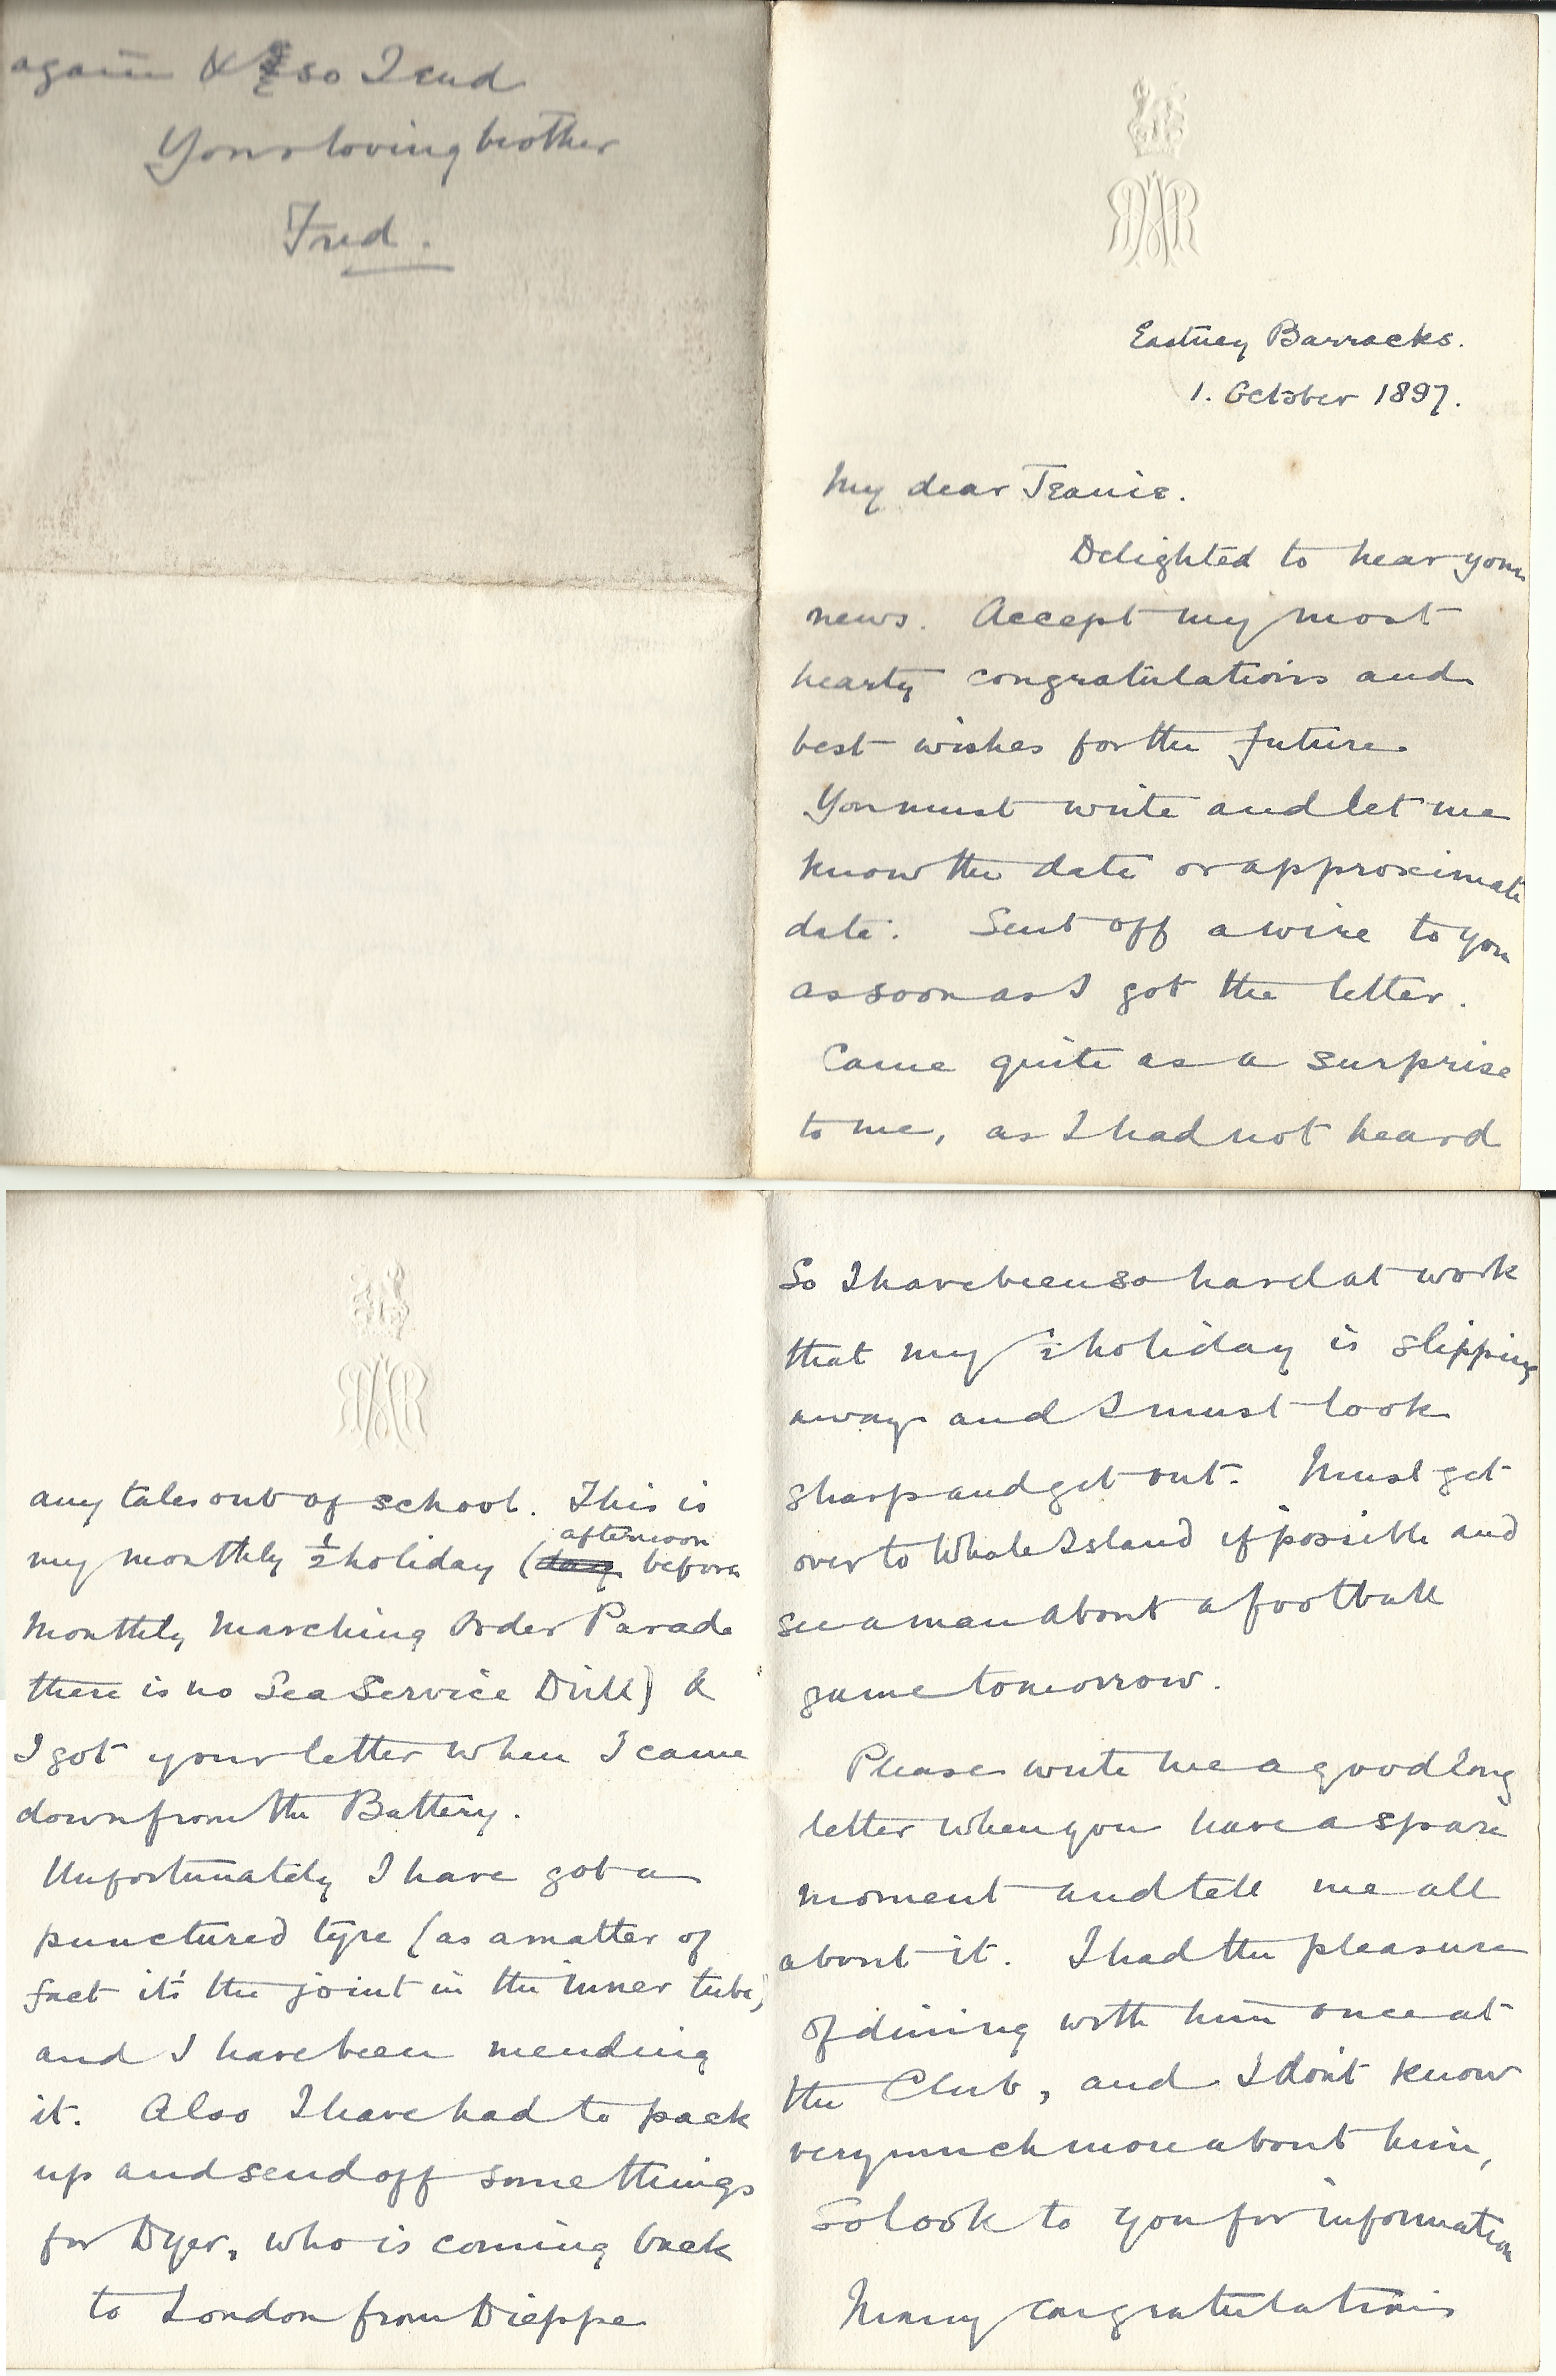 Eastney Barracks.
1. October 1897.
My dear Jeanie.
Delighted to hear your
news. Accept my most
hearty congratulations and
best wishes for the future.
You must write and let me
know the date or approximate
date. Sent off a wire to you
as soon as I got the letter.
Came quite as a surprise
to me, as I had not heard
any tales out of school. This is
afternoon
my monthly ½ holiday (day before
Monthly Marching Order Parade
there is no Sea Service Drill) &
I got your letter when I came
down from the Battery.
Unfortunately I have got a
punctured tyre (as a matter of
fact it's the joint in the inner tube)
and I have been mending
it. Also I have had to pack
up and send off some things
for Dyer, who is coming back
to London from Dieppe
So I have been so hard at work
that my ½ holiday is slipping
away and I must look
sharp and get out. Must get
over to Whale Island if possible and
see a man about a football
game tomorrow.
Please write me a good long
letter when you have a spare
moment and tell me all
about it. I had the pleasure
of dining with him once at
the Club, and I don't know
very much more about him,
So look to you for information
Many congratulations
again & so I end
Your loving brother
Fred.